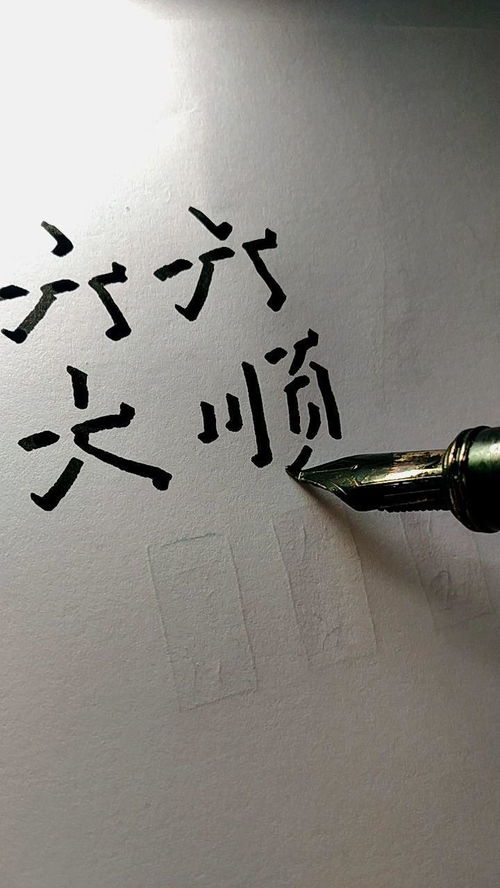 六六
大顺